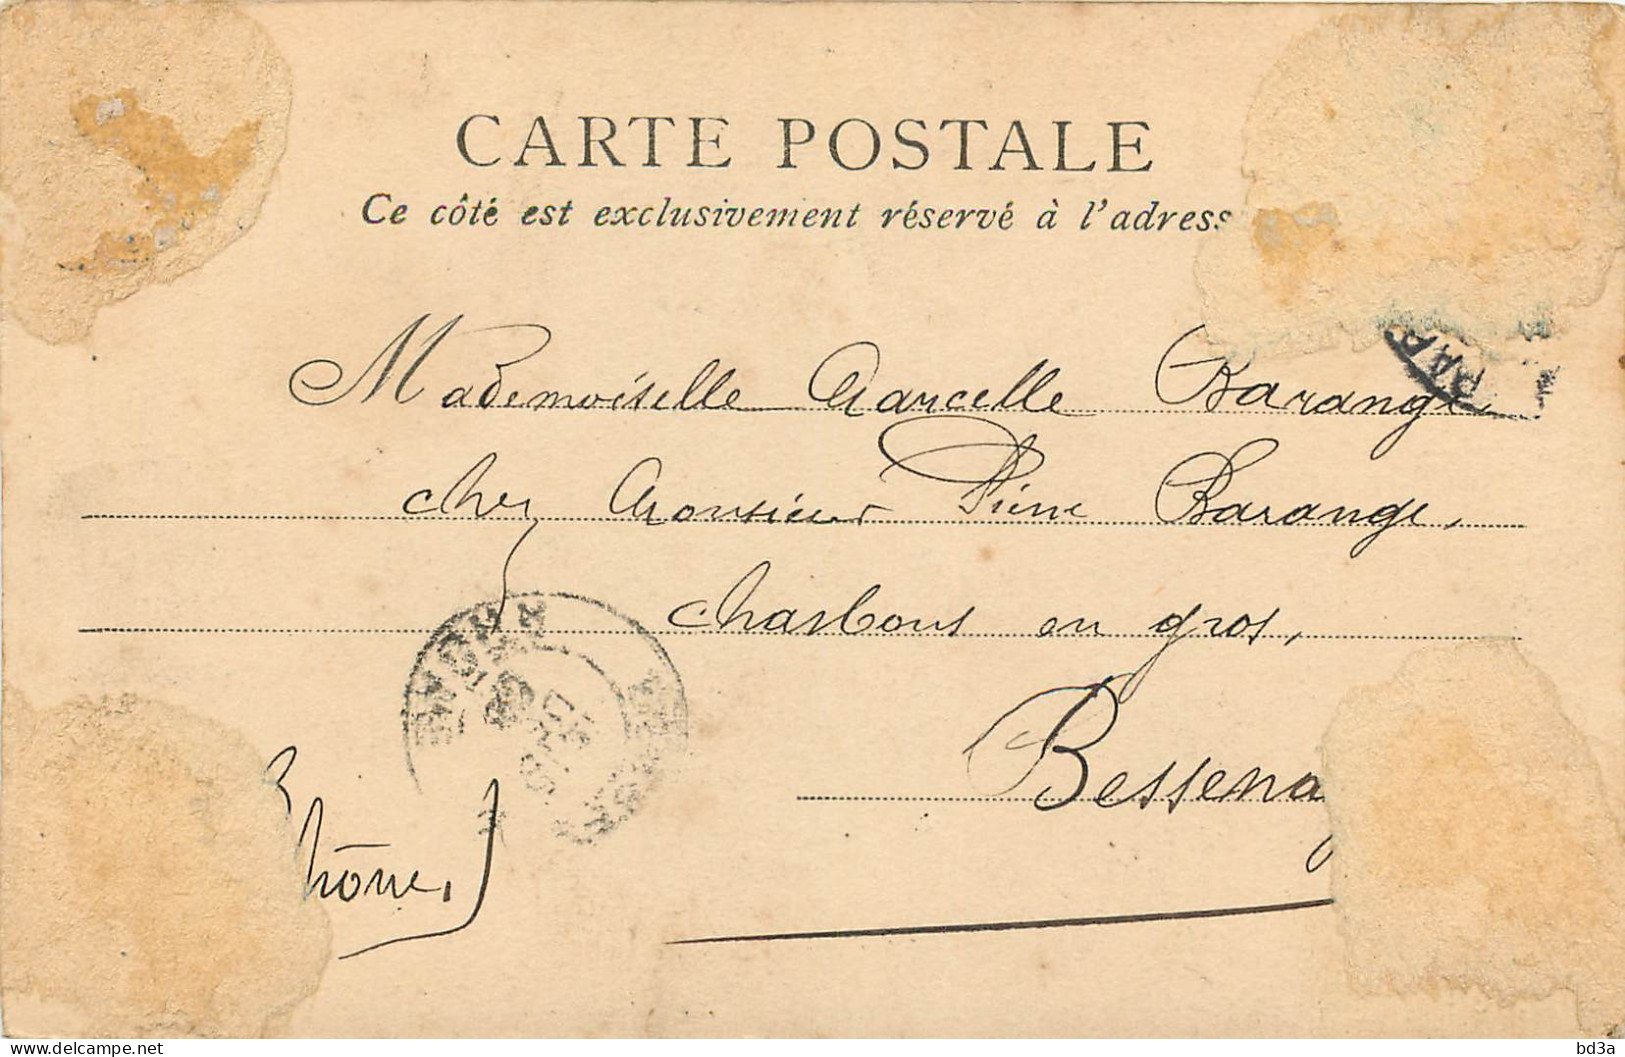 CARTE POSTALE
Ce côté est exclusivement réservé à l'adress
Mademoiselle Marcelle Barange,
chez Monsieur Pierre Barange,
charbons en gros,
Bessenay
Rhône.
delcampe.net
bd3a